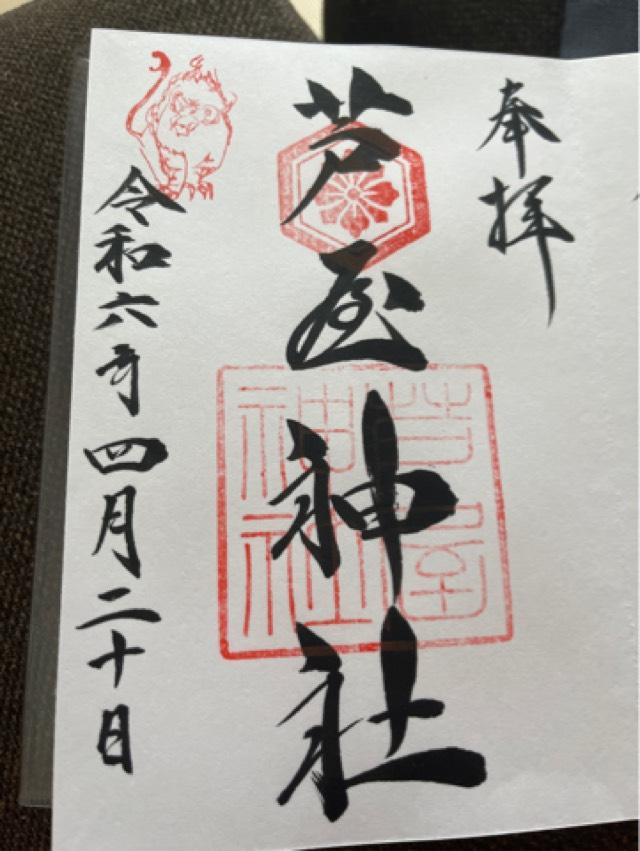 奉拝
芦屋神社
芦屋
神社
令和六年四月二十日